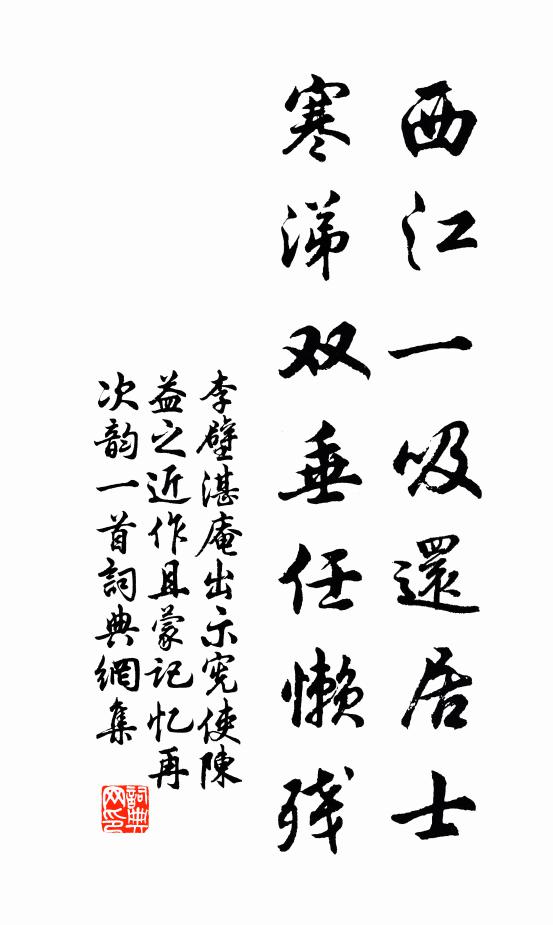 西江一吸還居士
寒涕双垂任懒残
李壁湛庵出示宪使陳
益之近作且蒙记忆再
次韵一首詞典網集
詞典網印